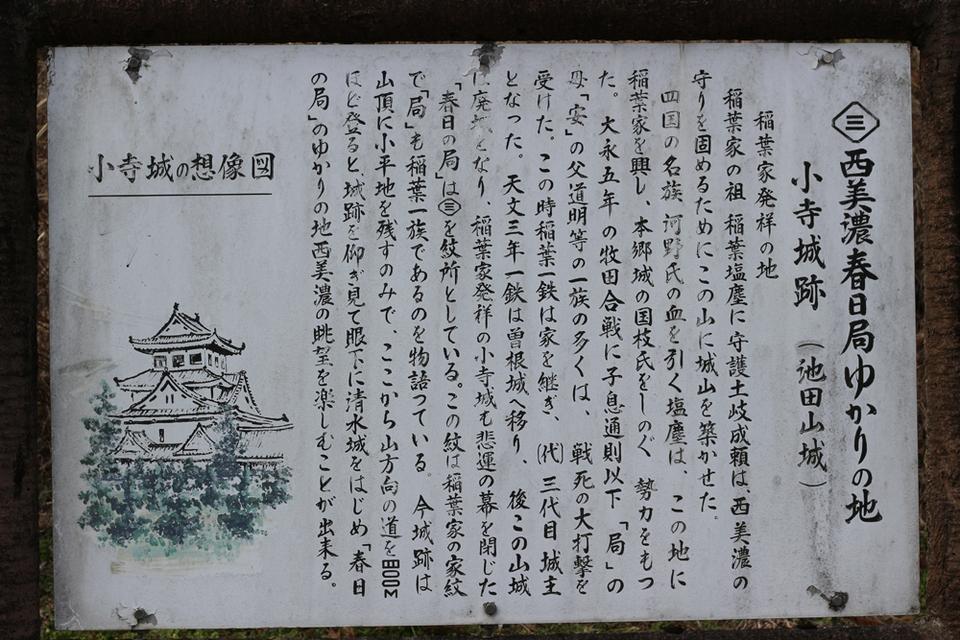 西美濃春日局ゆかりの地
小寺城跡（池田山城）
稲葉家発祥の地
稲葉家の祖 稲葉塩塵に守護土岐成頼は、西美濃の
守りを固めるためにこの山に城山を築かせた。
四国の名族 河野氏の血を引く塩塵は、この地に
稲葉家を興し、本郷城の国枝氏をしのぐ 勢力をもつ
た。 大永五年の牧田合戦に子息通則以下「局」の
母「安」の父道明等の一族の多くは、 戦死の大打撃を
受けた。この時稲葉一鉄は家を継ぎ、 (代) 三代目城主
となった。 天文三年一鉄は曽根城へ移り、 後この山城
は廃城となり、稲葉家発祥の小寺城も悲運の幕を閉じた
「春日の局」は㊂を紋所としている。この紋は稲葉家の家紋
で「局」も稲葉一族であるのを物語っている。 今城跡は
山頂に小平地を残すのみで、ここから山方向の道を800M
ほど登ると、城跡を仰ぎ見て眼下に清水城をはじめ「春日
の局」のゆかりの地西美濃の眺望を楽しむことが出来る。
小寺城の想像図